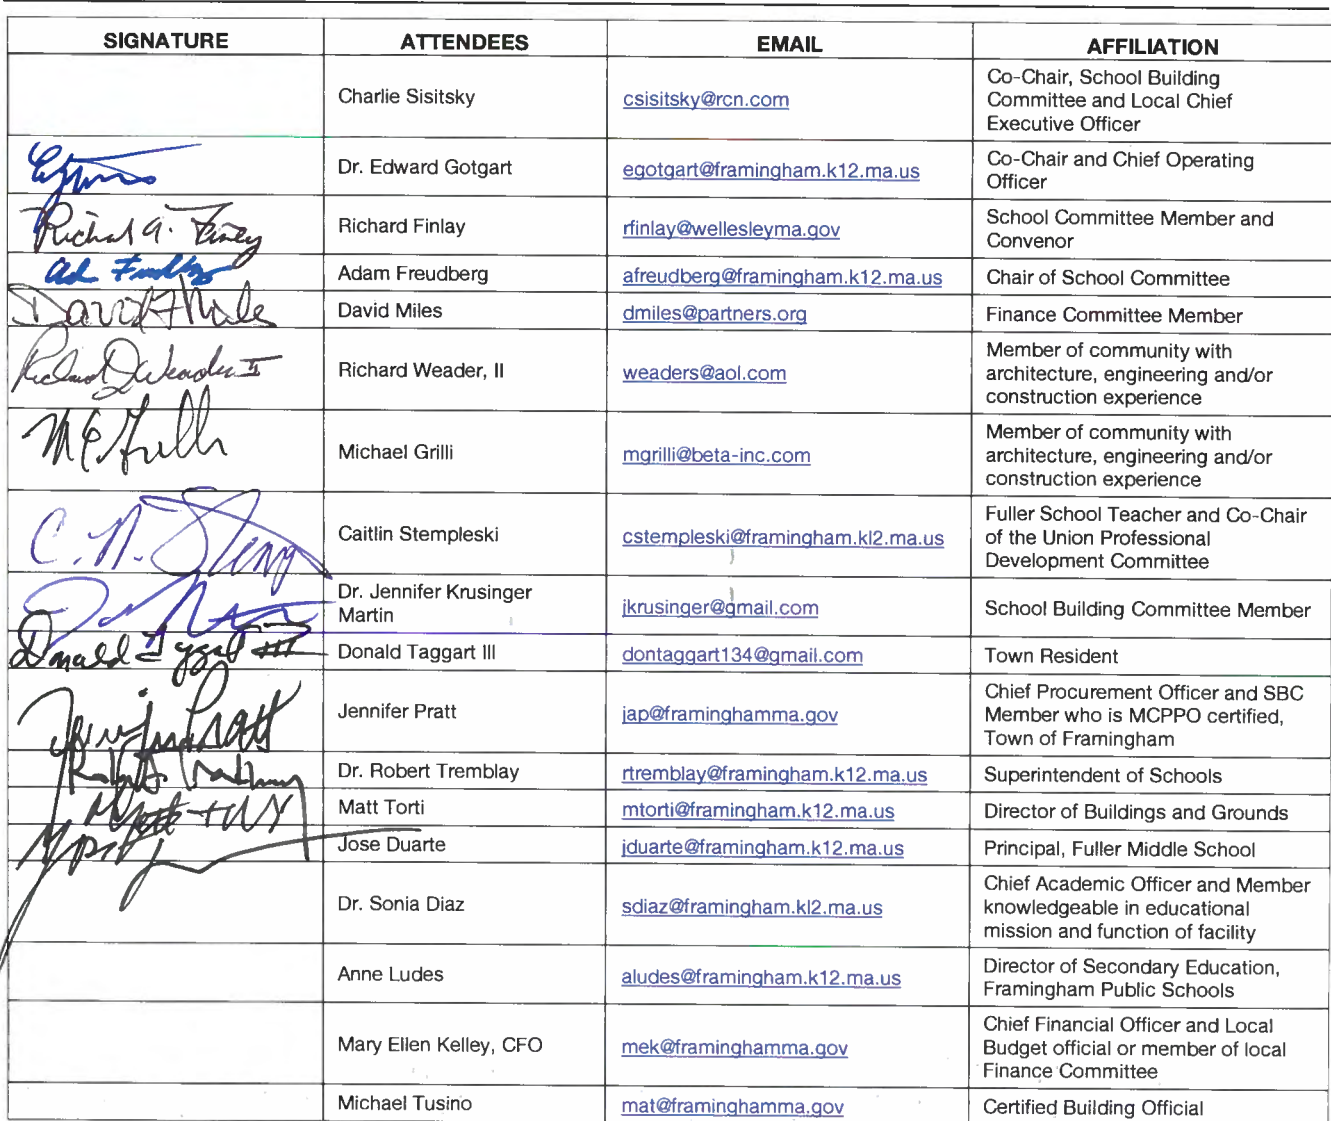 SIGNATURE ATTENDEES EMAIL AFFILIATION
Charlie Sisitsky csisitsky@rcn.com Co-Chair, School Building
Committee and Local Chief
Executive Officer
Dr. Edward Gotgart egotgart@framingham.k12.ma.us Co-Chair and Chief Operating
Officer
Richard A. Finlay Richard Finlay rfinlay@wellesleyma.gov School Committee Member and
Convenor
Adam Freudberg afreudberg@framingham.k12.ma.us Chair of School Committee
David Miles David Miles dmiles@partners.org Finance Committee Member
Richard D Weader II Richard Weader, II weaders@aol.com Member of community with
architecture, engineering and/or
construction experience
Michael Grilli mgrilli@beta-inc.com Member of community with
architecture, engineering and/or
construction experience
C. N. Stemp Caitlin Stempleski cstempleski@framingham.kl2.ma.us Fuller School Teacher and Co-Chair
of the Union Professional
Development Committee
Dr. Jennifer Krusinger
Martin jkrusinger@gmail.com School Building Committee Member
Donald Taggart III Donald Taggart III dontaggart134@gmail.com Town Resident
Jennifer Pratt Jennifer Pratt jap@framinghamma.gov Chief Procurement Officer and SBC
Member who is MCPPO certified,
Town of Framingham
Dr. Robert Tremblay rtremblay@framingham.k12.ma.us Superintendent of Schools
Matt Torti mtorti@framingham.k12.ma.us Director of Buildings and Grounds
Jose Duarte jduarte@framingham.k12.ma.us Principal, Fuller Middle School
Dr. Sonia Diaz sdiaz@framingham.kl2.ma.us Chief Academic Officer and Member
knowledgeable in educational
mission and function of facility
Anne Ludes aludes@framingham.k12.ma.us Director of Secondary Education,
Framingham Public Schools
Mary Ellen Kelley, CFO mek@framinghamma.gov Chief Financial Officer and Local
Budget official or member of local
Finance Committee
Michael Tusino mat@framinghamma.gov Certified Building Official